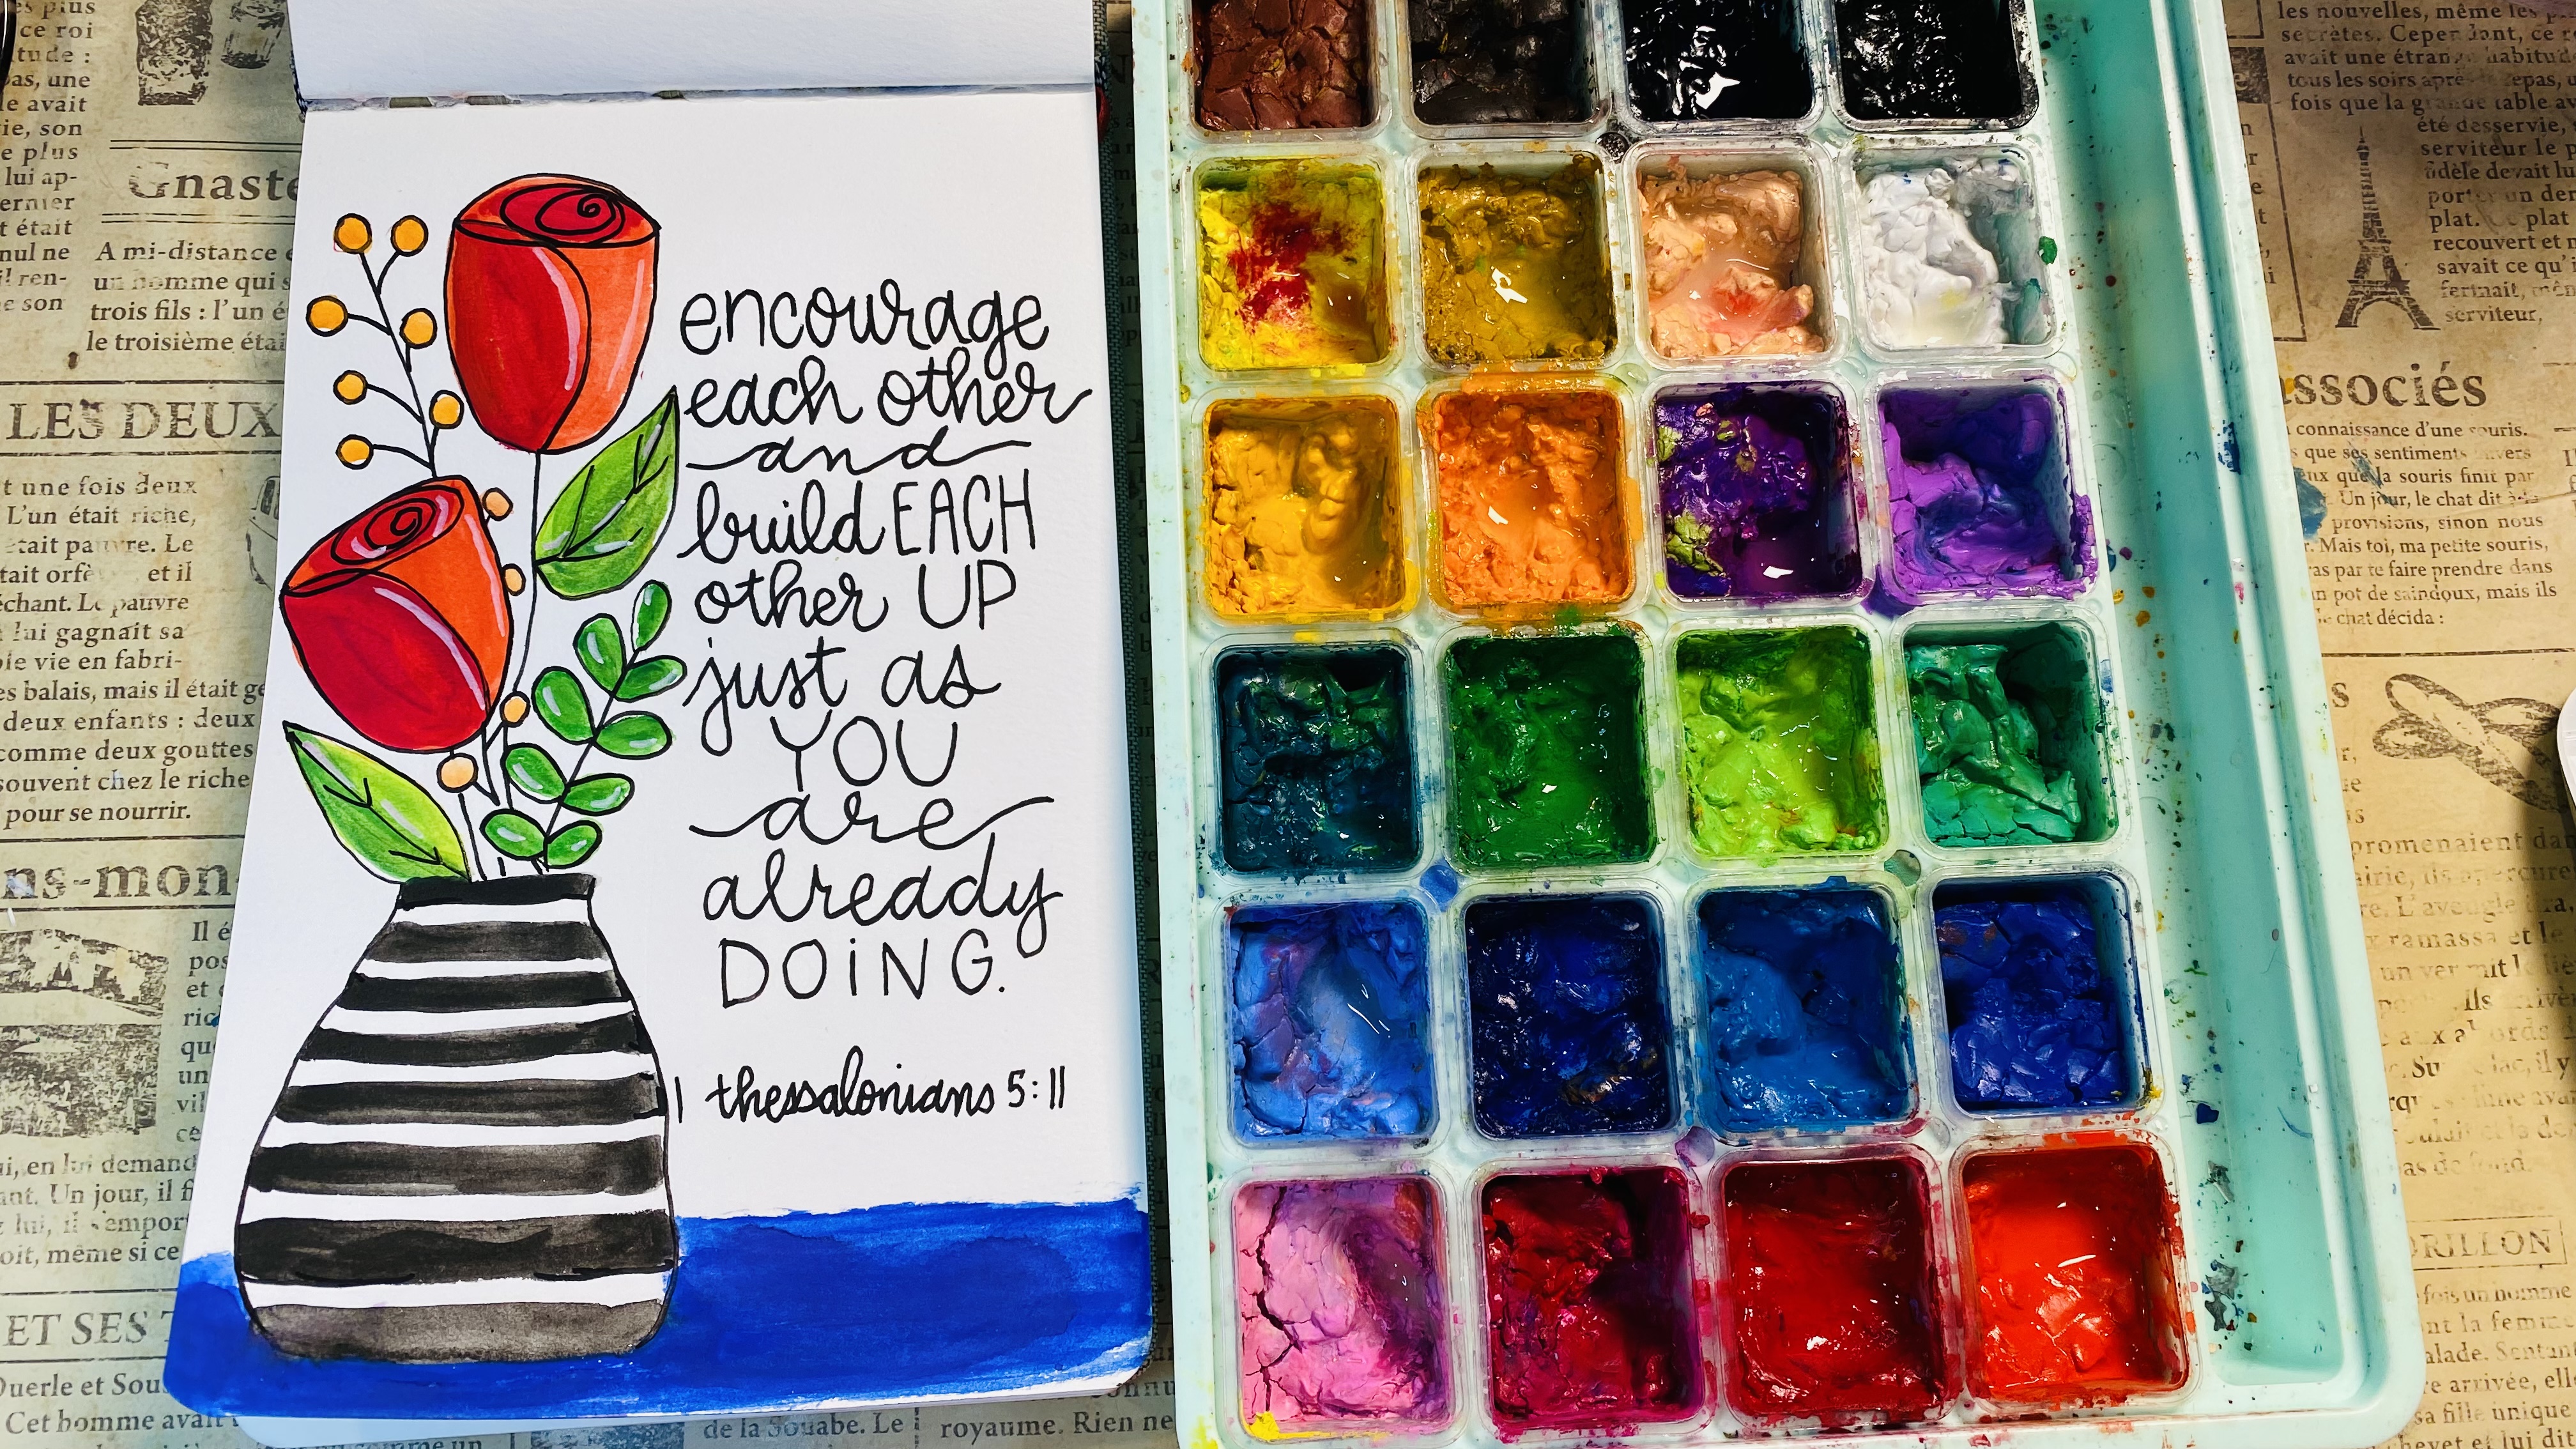 encourage
each other
and
build EACH
other UP
just as
YOU
are
already
DOiNG.
1 thessalonians 5:11
tude :
pas, une
e avait
ie, son
e plus
lui ap-
ernier
t était
nul ne
il ren-
e son
Gnaste
A mi-distance
un homme qui s
trois fils : l'un é
le troisième étai
LES DEUX
t une fois deux
L'un était riche,
était pauvre. Le
tait orfè et il
échant. Le pauvre
lui gagnait sa
ie vie en fabri-
es balais, mais il était ge
deux enfants : deux
comme deux gouttes
souvent chez le riche
pour se nourrir.
ns-mon
Il é
pos
et
ric
qu
un
vil
ce
i, en lui demand
ant. Un jour, il f
lui, il s'empor
oit, même si ce
ET SES
Querle et Sou
Cet homme avait
de la Souabe. Le
royaume. Rien ne
les nouvelles, même les p
secrètes. Cependant, ce r
avait une étran habitud
tous les soirs apr repas,
fois que la grande table av
été desservie,
serviteur le p
fidèle devait lu
porter un de
plat. Ce plat
recouvert et n
savait ce qu'i
fermait, mêm
serviteur,
associés
connaissance d'une souris.
que ses sentiments vers
ux que la souris finit par
Un jour, le chat dit à la
provisions, sinon nous
r. Mais toi, ma petite souris,
ras par te faire prendre dans
n pot de saindoux, mais ils
chat décida :
promenaient da
irie, ils aperçure
re. L'aveugle
ramassa et le
un ver mit le
Ils arrivè
aux abords
lac, il y
as de fond.
ORILLON
fois un homme
nt la femme
alade. Sentant
e arrivée, elle
sa fille unique
chevet et lui dit